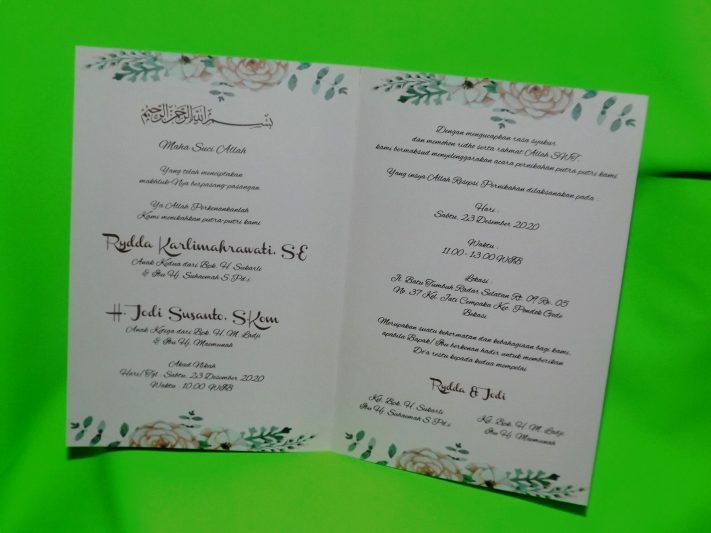 بسم الله الرحمن الرحيم
Maha Suci Allah
Yang telah menciptakan
makhluk-Nya berpasang-pasangan.
Ya Allah Perkenankanlah
Kami menikahkan putra-putri kami
Rydda Karlimahrawati, S.E
Anak Kedua dari Bpk. H. Sukarli
& Ibu Hj. Suhaemah S.Pd.i
H. Jodi Susanto, S.Kom
Anak Ketiga dari Bpk. H. M. Ladji
& Ibu Hj. Maemunah
Akad Nikah
Hari/Tgl : Sabtu, 23 Desember 2020
Waktu : 10.00 WIB
Dengan mengucapkan rasa syukur
dan memohon ridho serta rahmat Allah SWT
kami bermaksud menyelenggarakan acara pernikahan putra putri kami
Yang insya Allah Resepsi Pernikahan dilaksanakan pada
Hari :
Sabtu, 23 Desember 2020
Waktu :
11.00 - 13.00 WIB
Lokasi :
Jl. Batu Tumbuh Radar Selatan Rt. 09 Rw. 05
No. 37 Kel. Jati Cempaka Kec. Pondok Gede
Bekasi
Merupakan suatu kehormatan dan kebahagiaan bagi kami,
apabila Bapak/Ibu berkenan hadir untuk memberikan
Do'a restu kepada kedua mempelai
Rydda & Jodi
Kel. Bpk. H. Sukarli
Ibu Hj. Suhaemah S.Pd.i
Kel. Bpk. H. M. Ladji
Ibu Hj. Maemunah